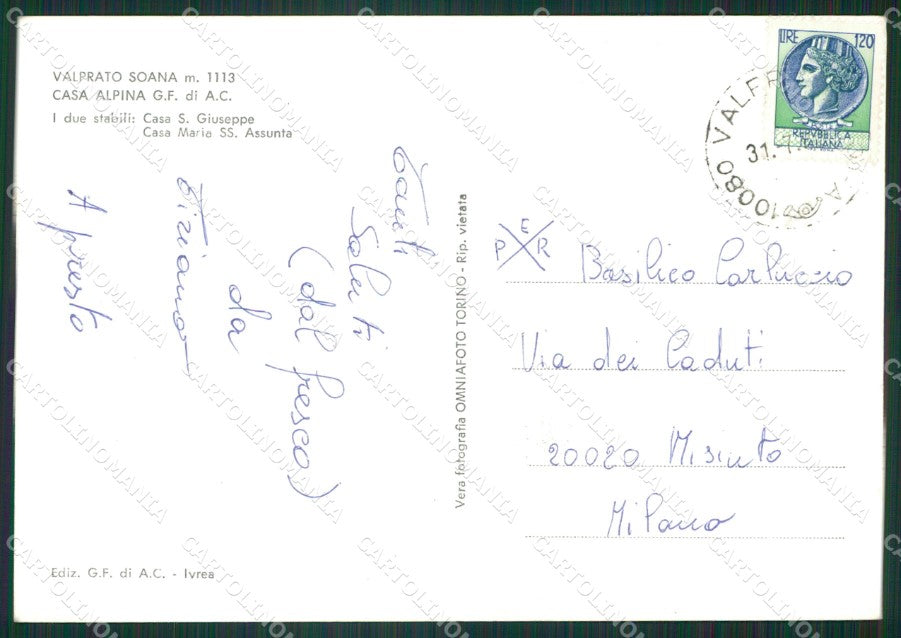 VALPRATO SOANA m. 1113
CASA ALPINA G.F. di A.C.
I due stabili: Casa S. Giuseppe
Casa Maria SS. Assunta
Tanti
Saluti
(dal fresco)
da
Tiziano
A presto
Ediz. G.F. di A.C. - Ivrea
Vera fotografia OMNIAFOTO TORINO - Rip. vietata
LIRE 120
REPVBBLICA
ITALIANA
10080 VALPR
31.
PER
Basilico Carluccio
Via dei Caduti
20020 Misinto
Milano
CARTOLINOMANIA